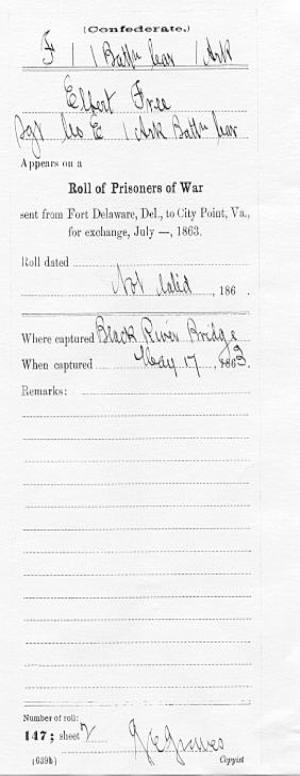 (Confederate.)
F | 1 Batt'n Cav | Ark
Elbert Free
Sgt Co E 1 Ark Batt'n Cav
Appears on a
Roll of Prisoners of War
sent from Fort Delaware, Del., to City Point, Va.,
for exchange, July —, 1863.
Roll dated
Not dated, 186 .
Where captured Black River Bridge
When captured May 17, 1863.
Remarks:
Number of roll:
147; sheet 2
(639b) Copyist